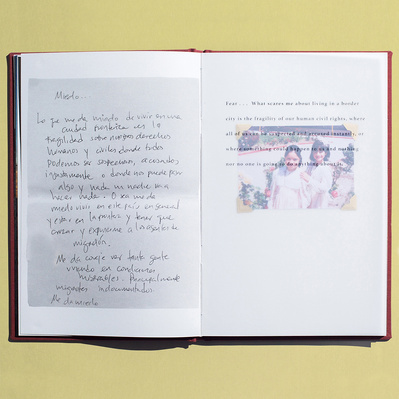 Miedo...
Lo que me da miedo de vivir en una
ciudad fronteriza es la
fragilidad de nuestros derechos
humanos y civiles donde todos
podemos ser sospechosos, acusados
y donde no puede pasar
algo y nada ni nadie va a
hacer nada. O sea me da
miedo vivir en este país en general
y estar en la frontera y tener que
cruzar y exponerme a los agentes de
migración.
Me da coraje ver tanta gente
viviendo en condiciones
miserables. Principalmente
migrantes indocumentados.
Me da miedo
Fear . . . What scares me about living in a border
city is the fragility of our human civil rights, where
all of us can be suspected and accused instantly, or
where something could happen to us and nothing
nor no one is going to do anything about it.